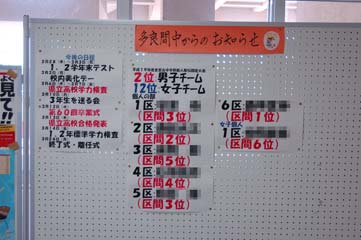 多良間中からのお知らせ
今後の日程
1、2学年末テスト
校内美化デー
県立高校学力検査
3年生を送る会
第60回卒業式
県立高校合格発表
1、2年標準学力検査
終了式・離任式
2位 男子チーム
12位 女子チーム
個人の部
1区
(区間3位)
2区
(区間2位)
3区
(区間5位)
4区
(区間4位)
5区
(区間3位)
6区
(区間1位)
女子個人
1区
(区間6位)
見て!!